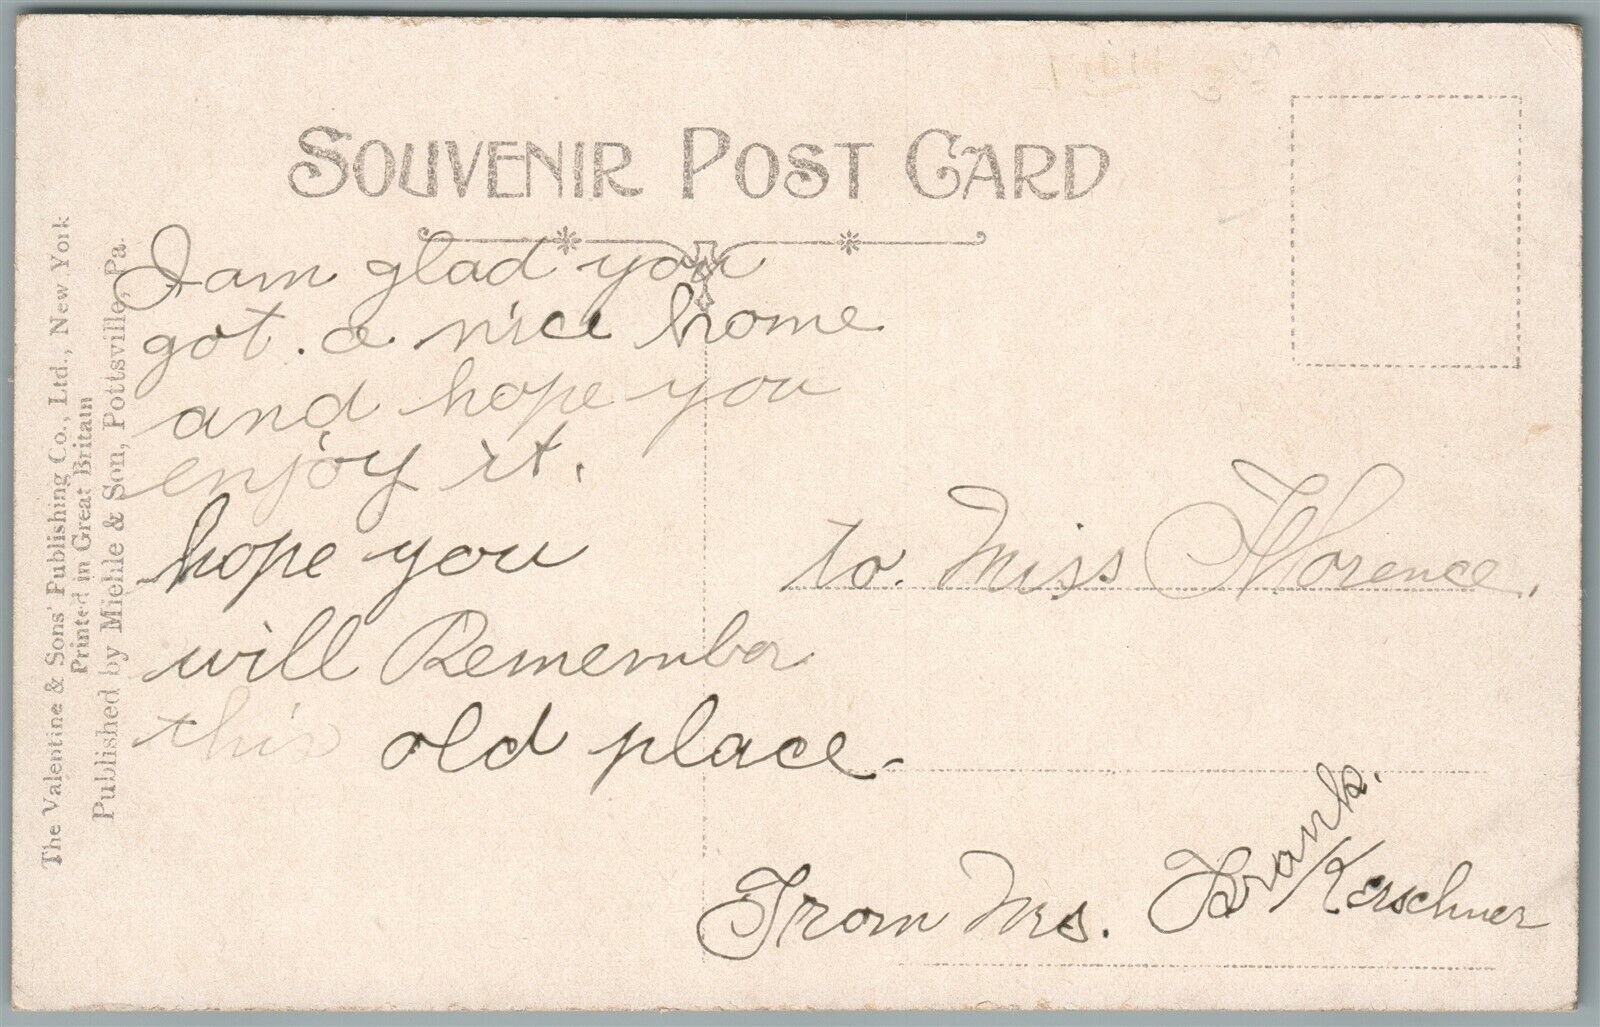 SOUVENIR POST CARD
I am glad you
got . a nice home
and hope you
enjoy it.
hope you
will Remember
this old place.
to. Miss Florence,
From Mrs. Frank.
Kerschner
The Valentine & Sons' Publishing Co., Ltd., New York
Printed in Great Britain
Published by Miehle & Son, Pottsville, Pa.